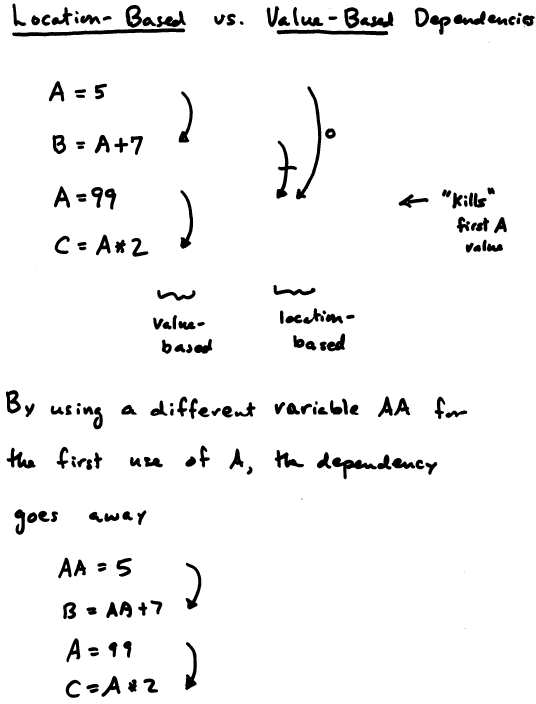 Location-Based vs. Value-Based Dependencies
A = 5
B = A+7
A = 99
C = A*2
← "Kills"
first A
value
value-
based
location-
based
By using a different variable AA for
the first use of A, the dependency
goes away
AA = 5
B = AA+7
A = 99
C = A*2